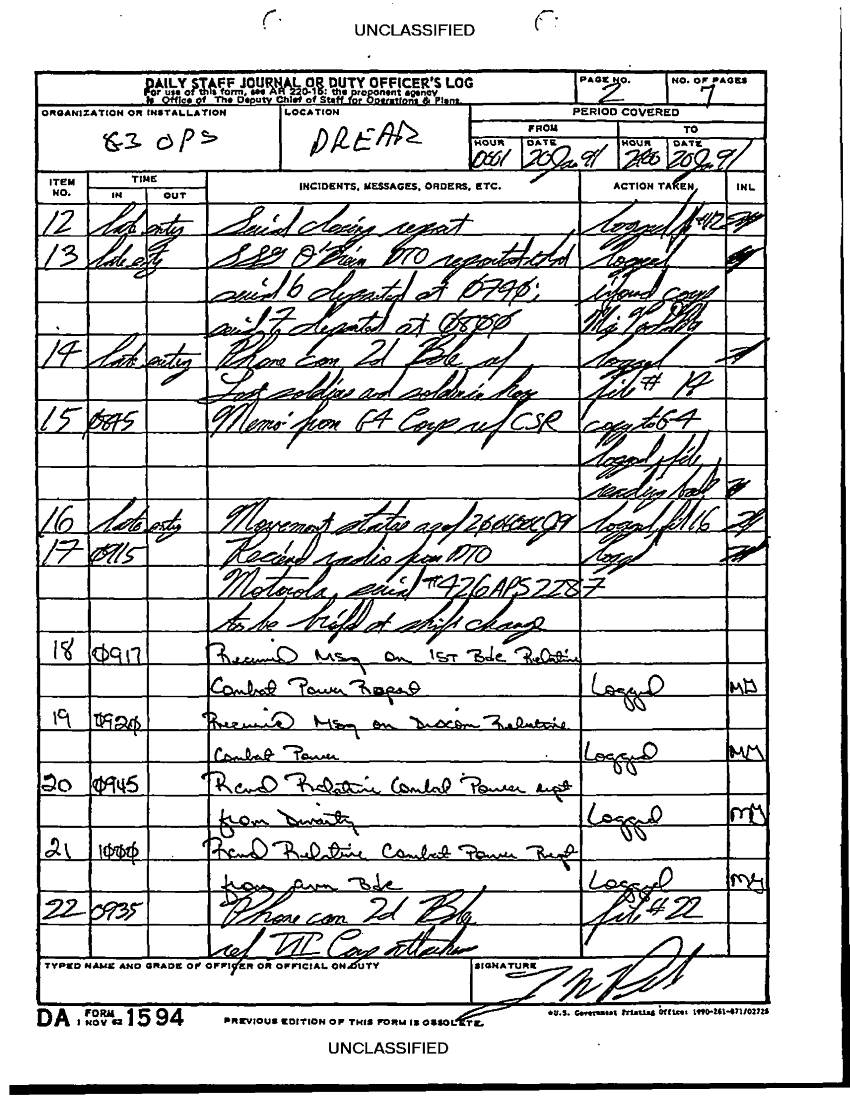 UNCLASSIFIED
DAILY STAFF JOURNAL OR DUTY OFFICER'S LOG
For use of this form, see AR 220-15; the proponent agency
is Office of The Deputy Chief of Staff for Operations & Plans.
PAGE NO.
2
NO. OF PAGES
7
ORGANIZATION OR INSTALLATION
G3 OPS
LOCATION
DREAR
PERIOD COVERED
FROM
TO
HOUR
0001
DATE
20 Jan 91
HOUR
2400
DATE
20 Jan 91
ITEM NO.
TIME
IN
OUT
INCIDENTS, MESSAGES, ORDERS, ETC.
ACTION TAKEN
INL
12 late entry Serial closing report logged
13 late entry SSG O'Brien DTO reported that logged
serial 6 departed at 0740; informed corps
serial 7 departed at 0800 Maj
14 late entry Phone con 2d Bde ref logged
Lost soldiers and soldiers file # 14
15 0845 Memo from G4 Corps ref CSR copy to G4
logged, file,
reading book
16 late entry Movement status as of logged file 16
17 0915 Received radio from DTO logged
Motorola, serial #426APS2287
to be briefed at shift change
18 0917 Received Msg on 1ST Bde Relative
Combat Power Report Logged MG
19 0920 Received Msg on Discom Relative
Combat Power Logged MG
20 0945 Rcvd Relative Combat Power rept
from Divarty Logged MG
21 1000 Rcvd Relative Combat Power Rept
from avn Bde Logged MG
22 0935 Phone con 2d Bde file # 22
ref VII Corp
TYPED NAME AND GRADE OF OFFICER OR OFFICIAL ON DUTY
SIGNATURE
DA FORM 1 NOV 62 1594
PREVIOUS EDITION OF THIS FORM IS OBSOLETE.
*U.S. Government Printing Office: 1990-261-871/02725
UNCLASSIFIED